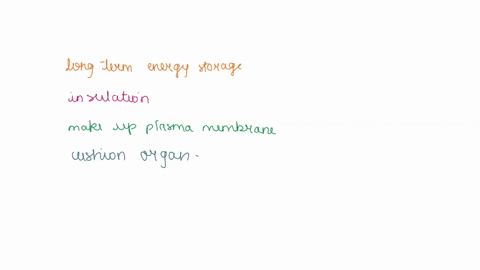 long-term energy storage
insulation
make up plasma membrane
cushion organ.